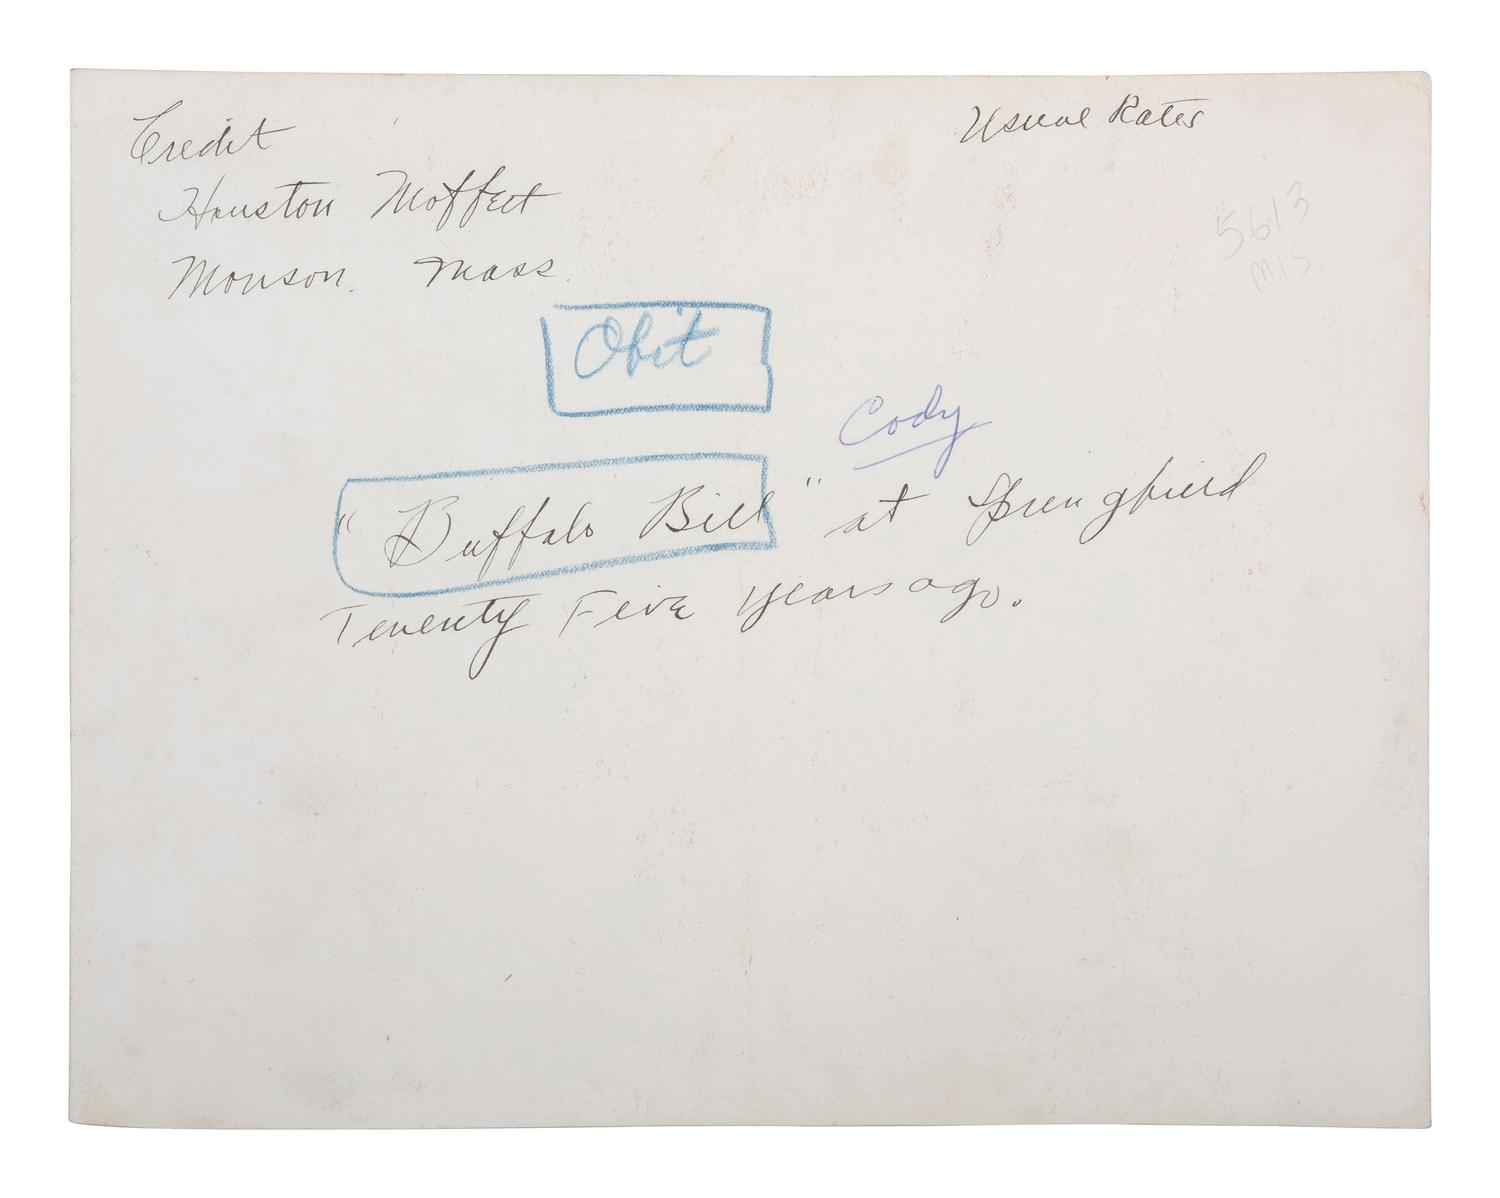 Credit
Usual Rates
Houston Moffett
Monson. Mass.
5613
MIS
Obit
Cody
"Buffalo Bill" at Springfield
Twenty Five years ago.